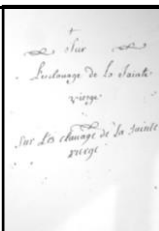 Sur
L'esclavage de la Sainte
vierge.
Sur L'es clavage de La Sainte
vierge